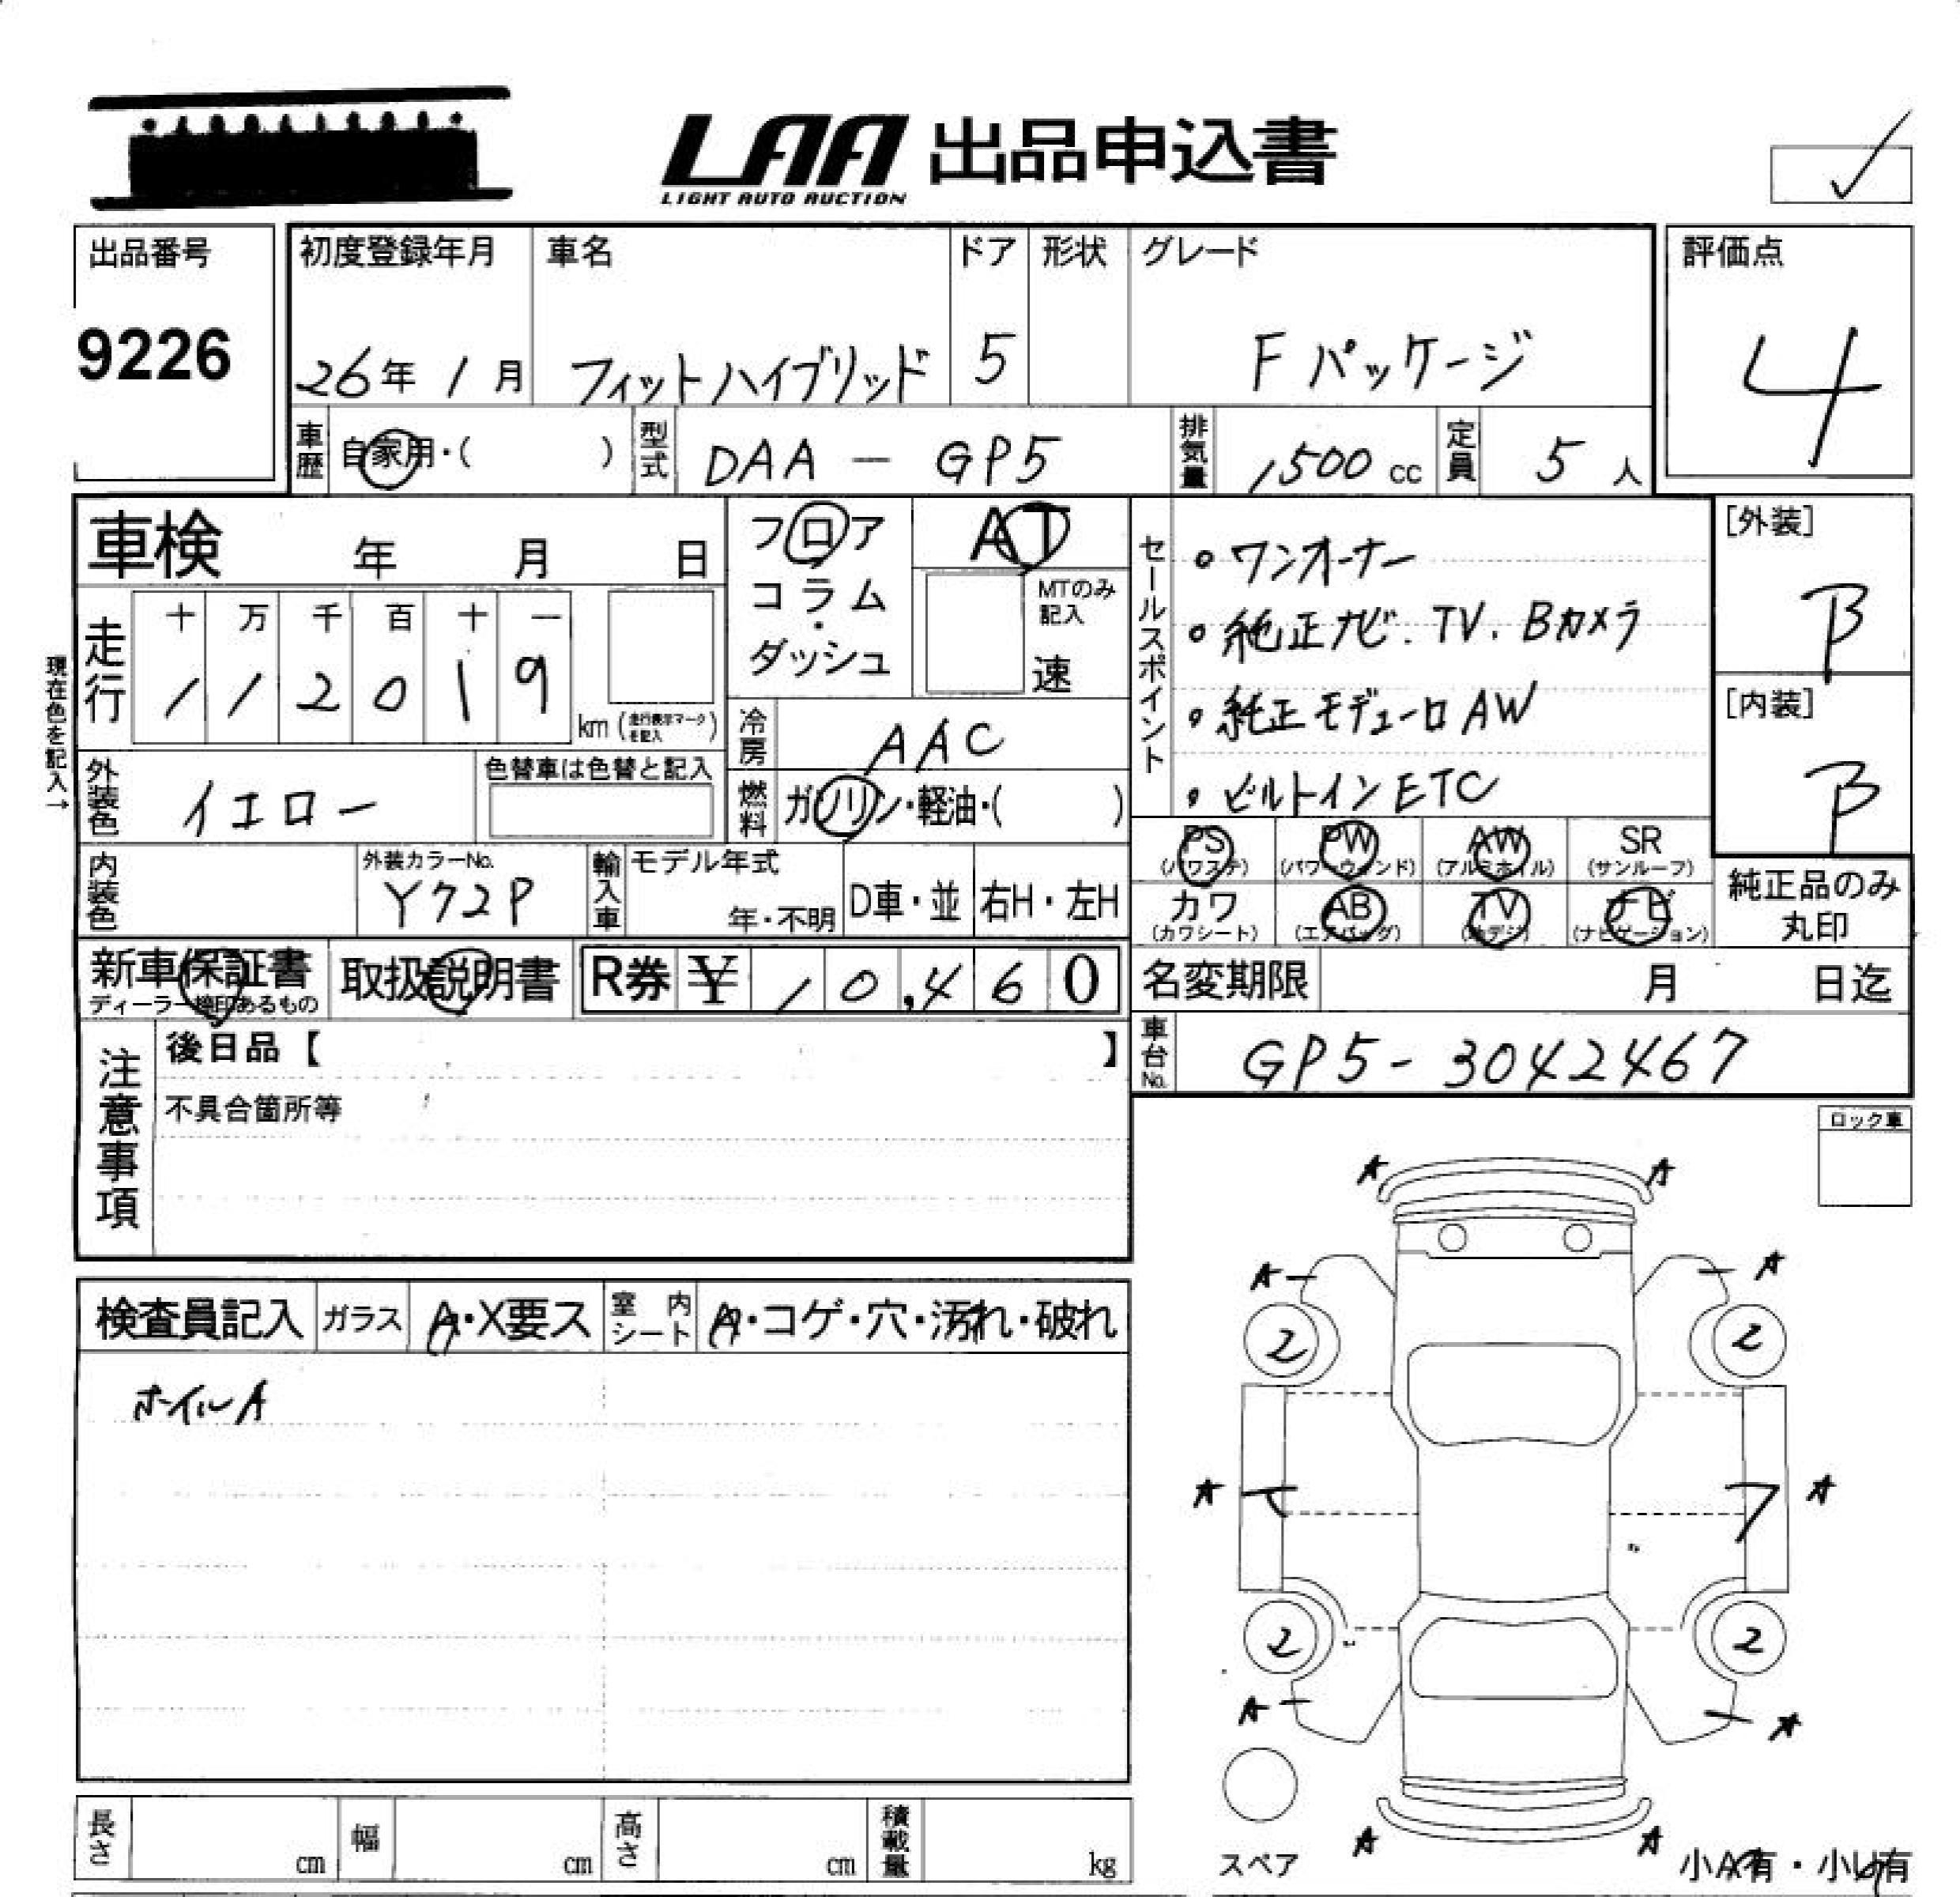 LAA 出品申込書
LIGHT AUTO AUCTION
出品番号
9226
初度登録年月 車名 ドア 形状 グレード
26年 1月 フィットハイブリッド 5 Fパッケージ
評価点
4
車歴 自家用・( ) 型式 DAA - GP5 排気量 1500 cc 定員 5 人
車検 年 月 日
フロア
コラム
・
ダッシュ
AT
MTのみ
記入
速
現在色を記入→
走行 十 万 千 百 十 一
1 1 2 0 1 9
km (走行表示マークを記入)
冷房 AAC
外装色 イエロー
色替車は色替と記入
燃料 ガソリン・軽油・( )
セールスポイント
・ワンオーナー
・純正ナビ.TV.Bカメラ
・純正モデューロAW
・ビルトインETC
[外装]
B
[内装]
B
内装色
外装カラーNo.
Y72P
輸入車 モデル年式
年・不明 D車・並 右H・左H
PS (パワステ) PW (パワーウィンド) AW (アルミホイル) SR (サンルーフ)
カワ (カワシート) AB (エアバッグ) TV (地デジ) ナビ (ナビゲーション)
純正品のみ
丸印
新車保証書
ディーラー検印あるもの
取扱説明書 R券 ¥ 10,460
名変期限 月 日迄
車台No. GP5-3042467
注意事項
後日品【 】
不具合箇所等
ロック車
検査員記入 ガラス A・X要ス 室内シート A・コゲ・穴・汚れ・破れ
ホイルA
A A
A A
2 2
A A
2 2
A A
A A
スペア
小A有・小U有
長さ cm 幅 cm 高さ cm 積載量 kg